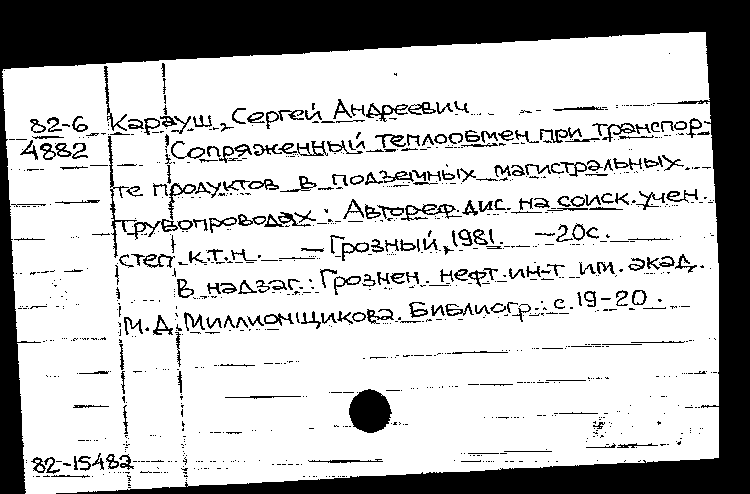 82-6 Карауш, Сергей Андреевич
4882 Сопряженный теплообмен при транспор-
те продуктов в подземных магистральных
трубопроводах: Автореф. дис. на соиск. учен.
степ. к.т.н. — Грозный, 1981. — 20с.
В надзаг.: Грознен. нефт. ин-т им. акад.
М.Д. Миллионщикова. Библиогр.: с. 19-20.
82-15482